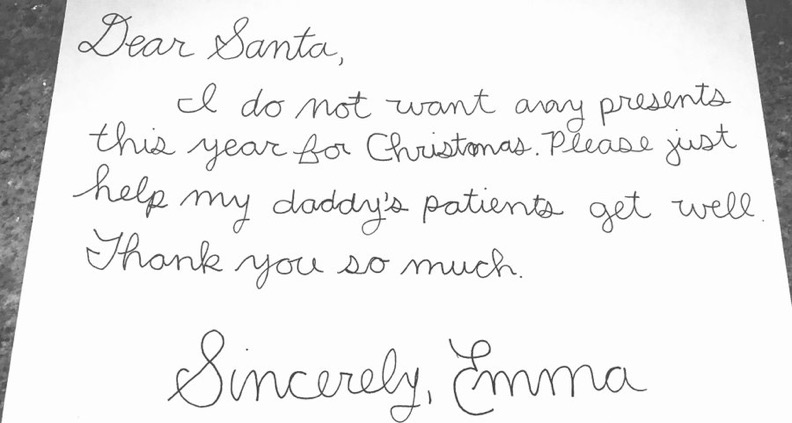 Dear Santa,
I do not want any presents
this year for Christmas. Please just
help my daddy's patients get well.
Thank you so much.
Sincerely, Emma